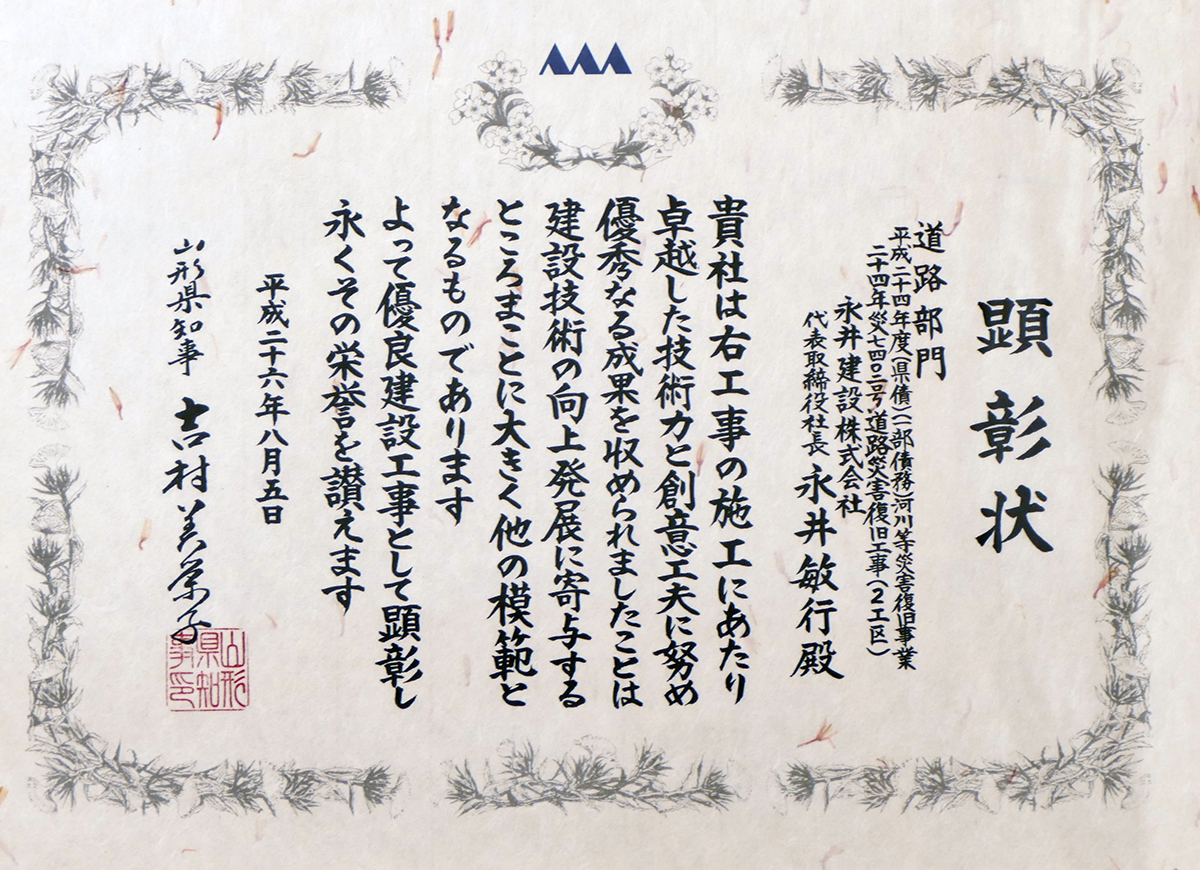 顕彰状
道路部門
平成二十四年度(県債)(一部債務)河川等災害復旧事業
二十四年災七四〇二号道路災害復旧工事(2工区)
永井建設株式会社
代表取締役社長 永井敏行殿
貴社は右工事の施工にあたり
卓越した技術力と創意工夫に努め
優秀なる成果を収められましたことは
建設技術の向上発展に寄与する
ところまことに大きく他の模範と
なるものであります
よって優良建設工事として顕彰し
永くその栄誉を讃えます
平成二十六年八月五日
山形県知事 吉村美栄子
山形県知事之印